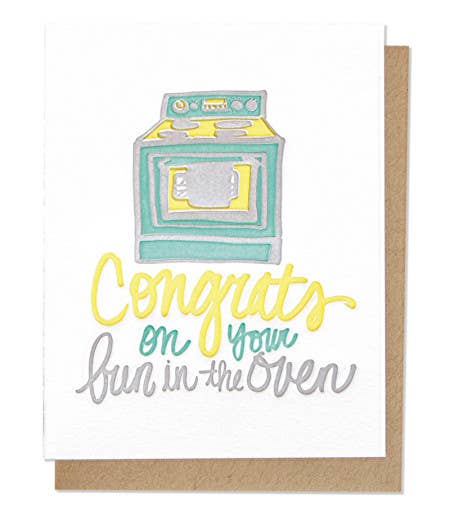 Congrats
on your
bun in the oven